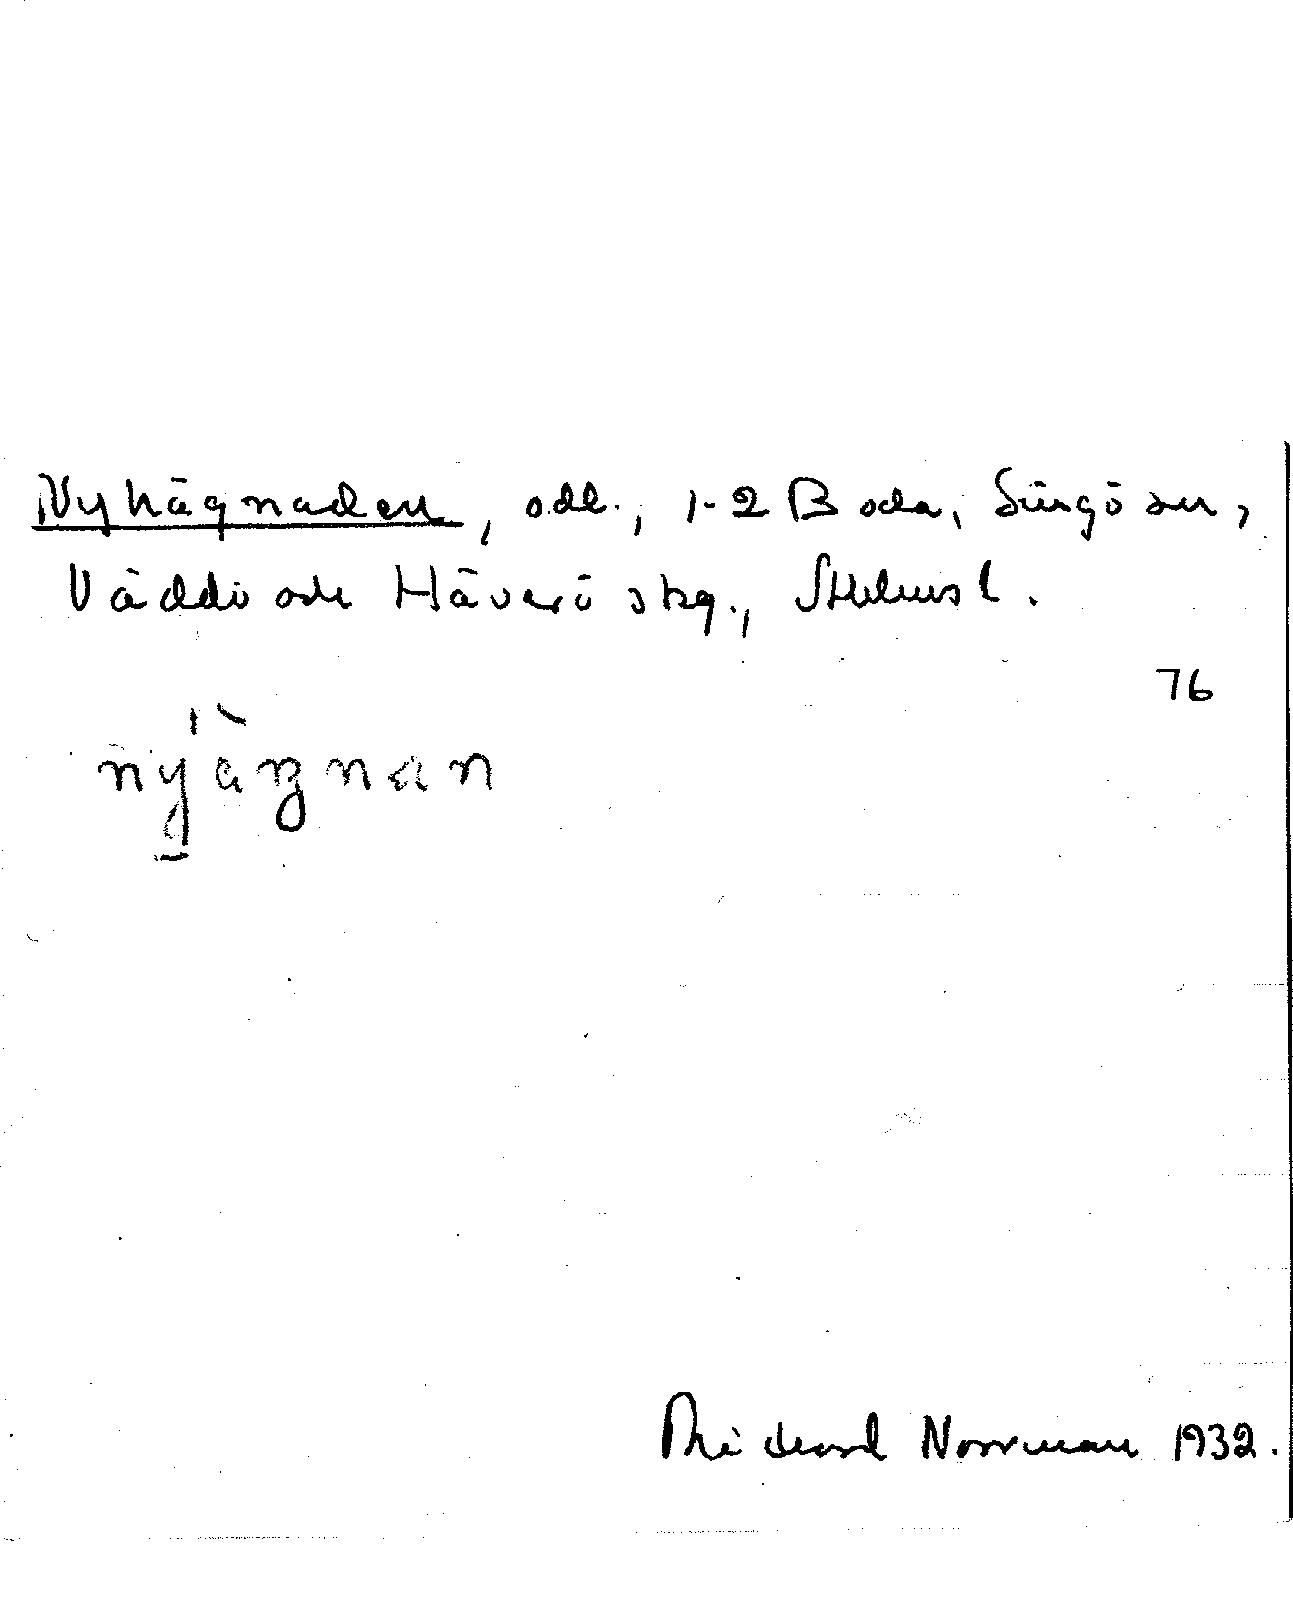 Nyhägnaden, odl., 1-2 Boda, Singö sn,
Väddö och Häverö skg., Sthlms l.
76
nyägnan
Rickard Norrman 1932.